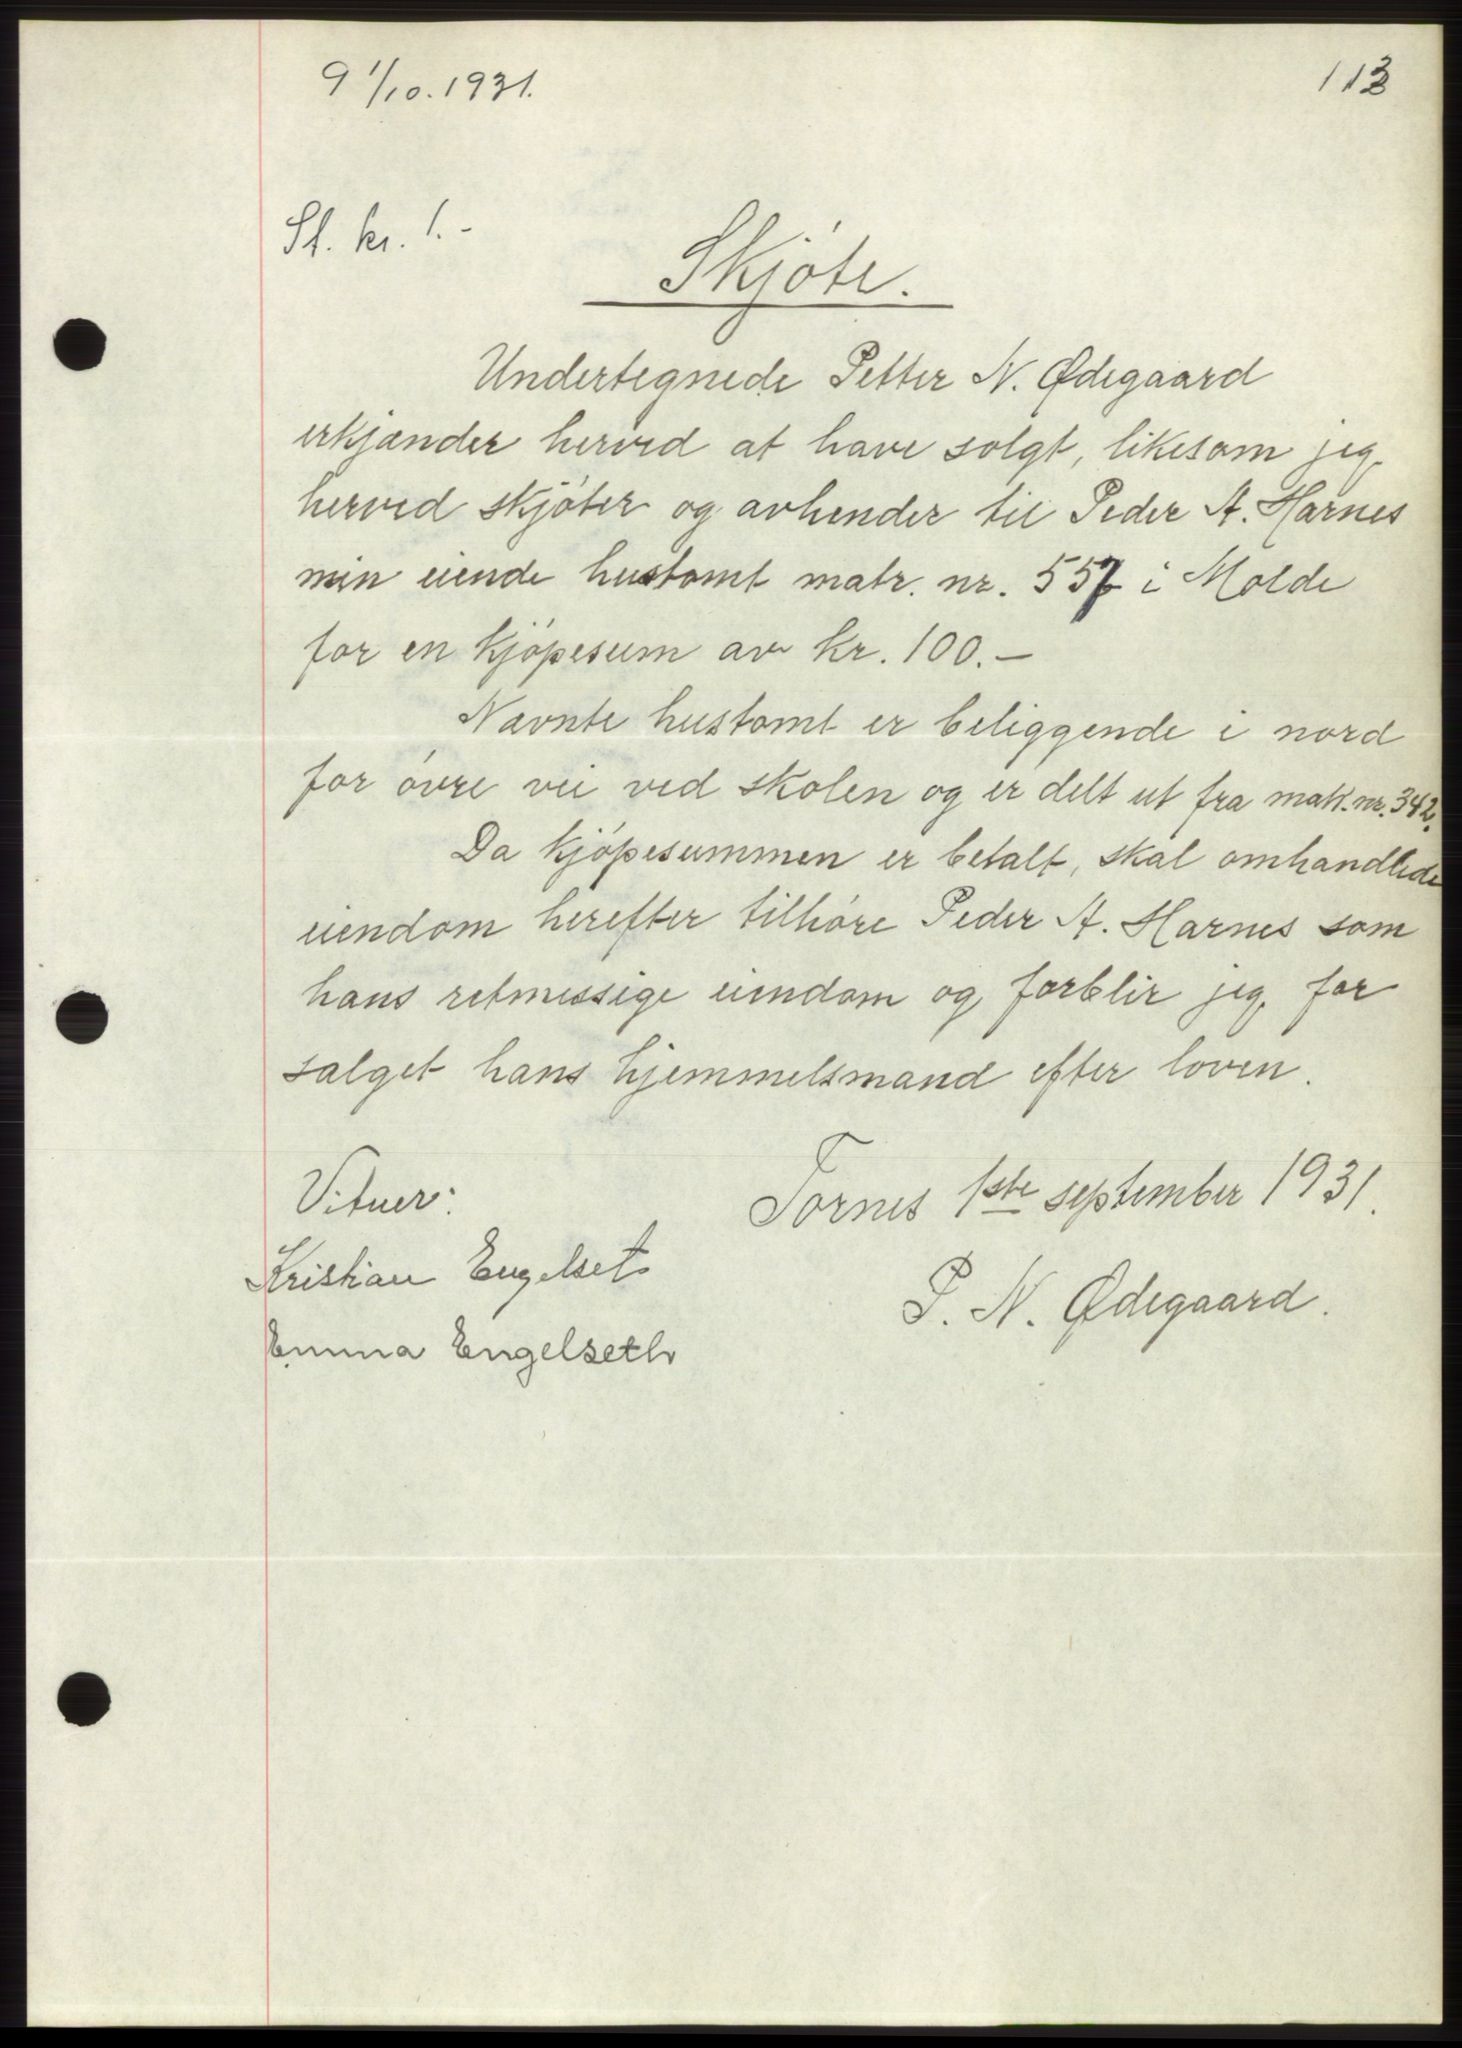 9 1/10. 1931.
113
St. kr. 1.-
Skjøte.
Undertegnede Petter N. Ødegaard
erkjænder herved at have solgt, likesom jeg
herved skjøter og avhender til Peder A. Harnes
min eiende hustomt matr. nr. 557 i Molde
for en kjøpesum av kr. 100.-
Nævnte hustomt er beliggende i nord
for øvre vei ved skolen og er delt ut fra matr. nr. 342.
Da kjøpesummen er betalt, skal omhandlede
eiendom herefter tilhøre Peder A. Harnes som
hans retmessige eiendom og forblir jeg for
salget hans hjemmelsmand efter loven.
Vitner:
Tornes 1ste september 1931.
Kristian Engelset
P. N. Ødegaard.
Emma Engelseth